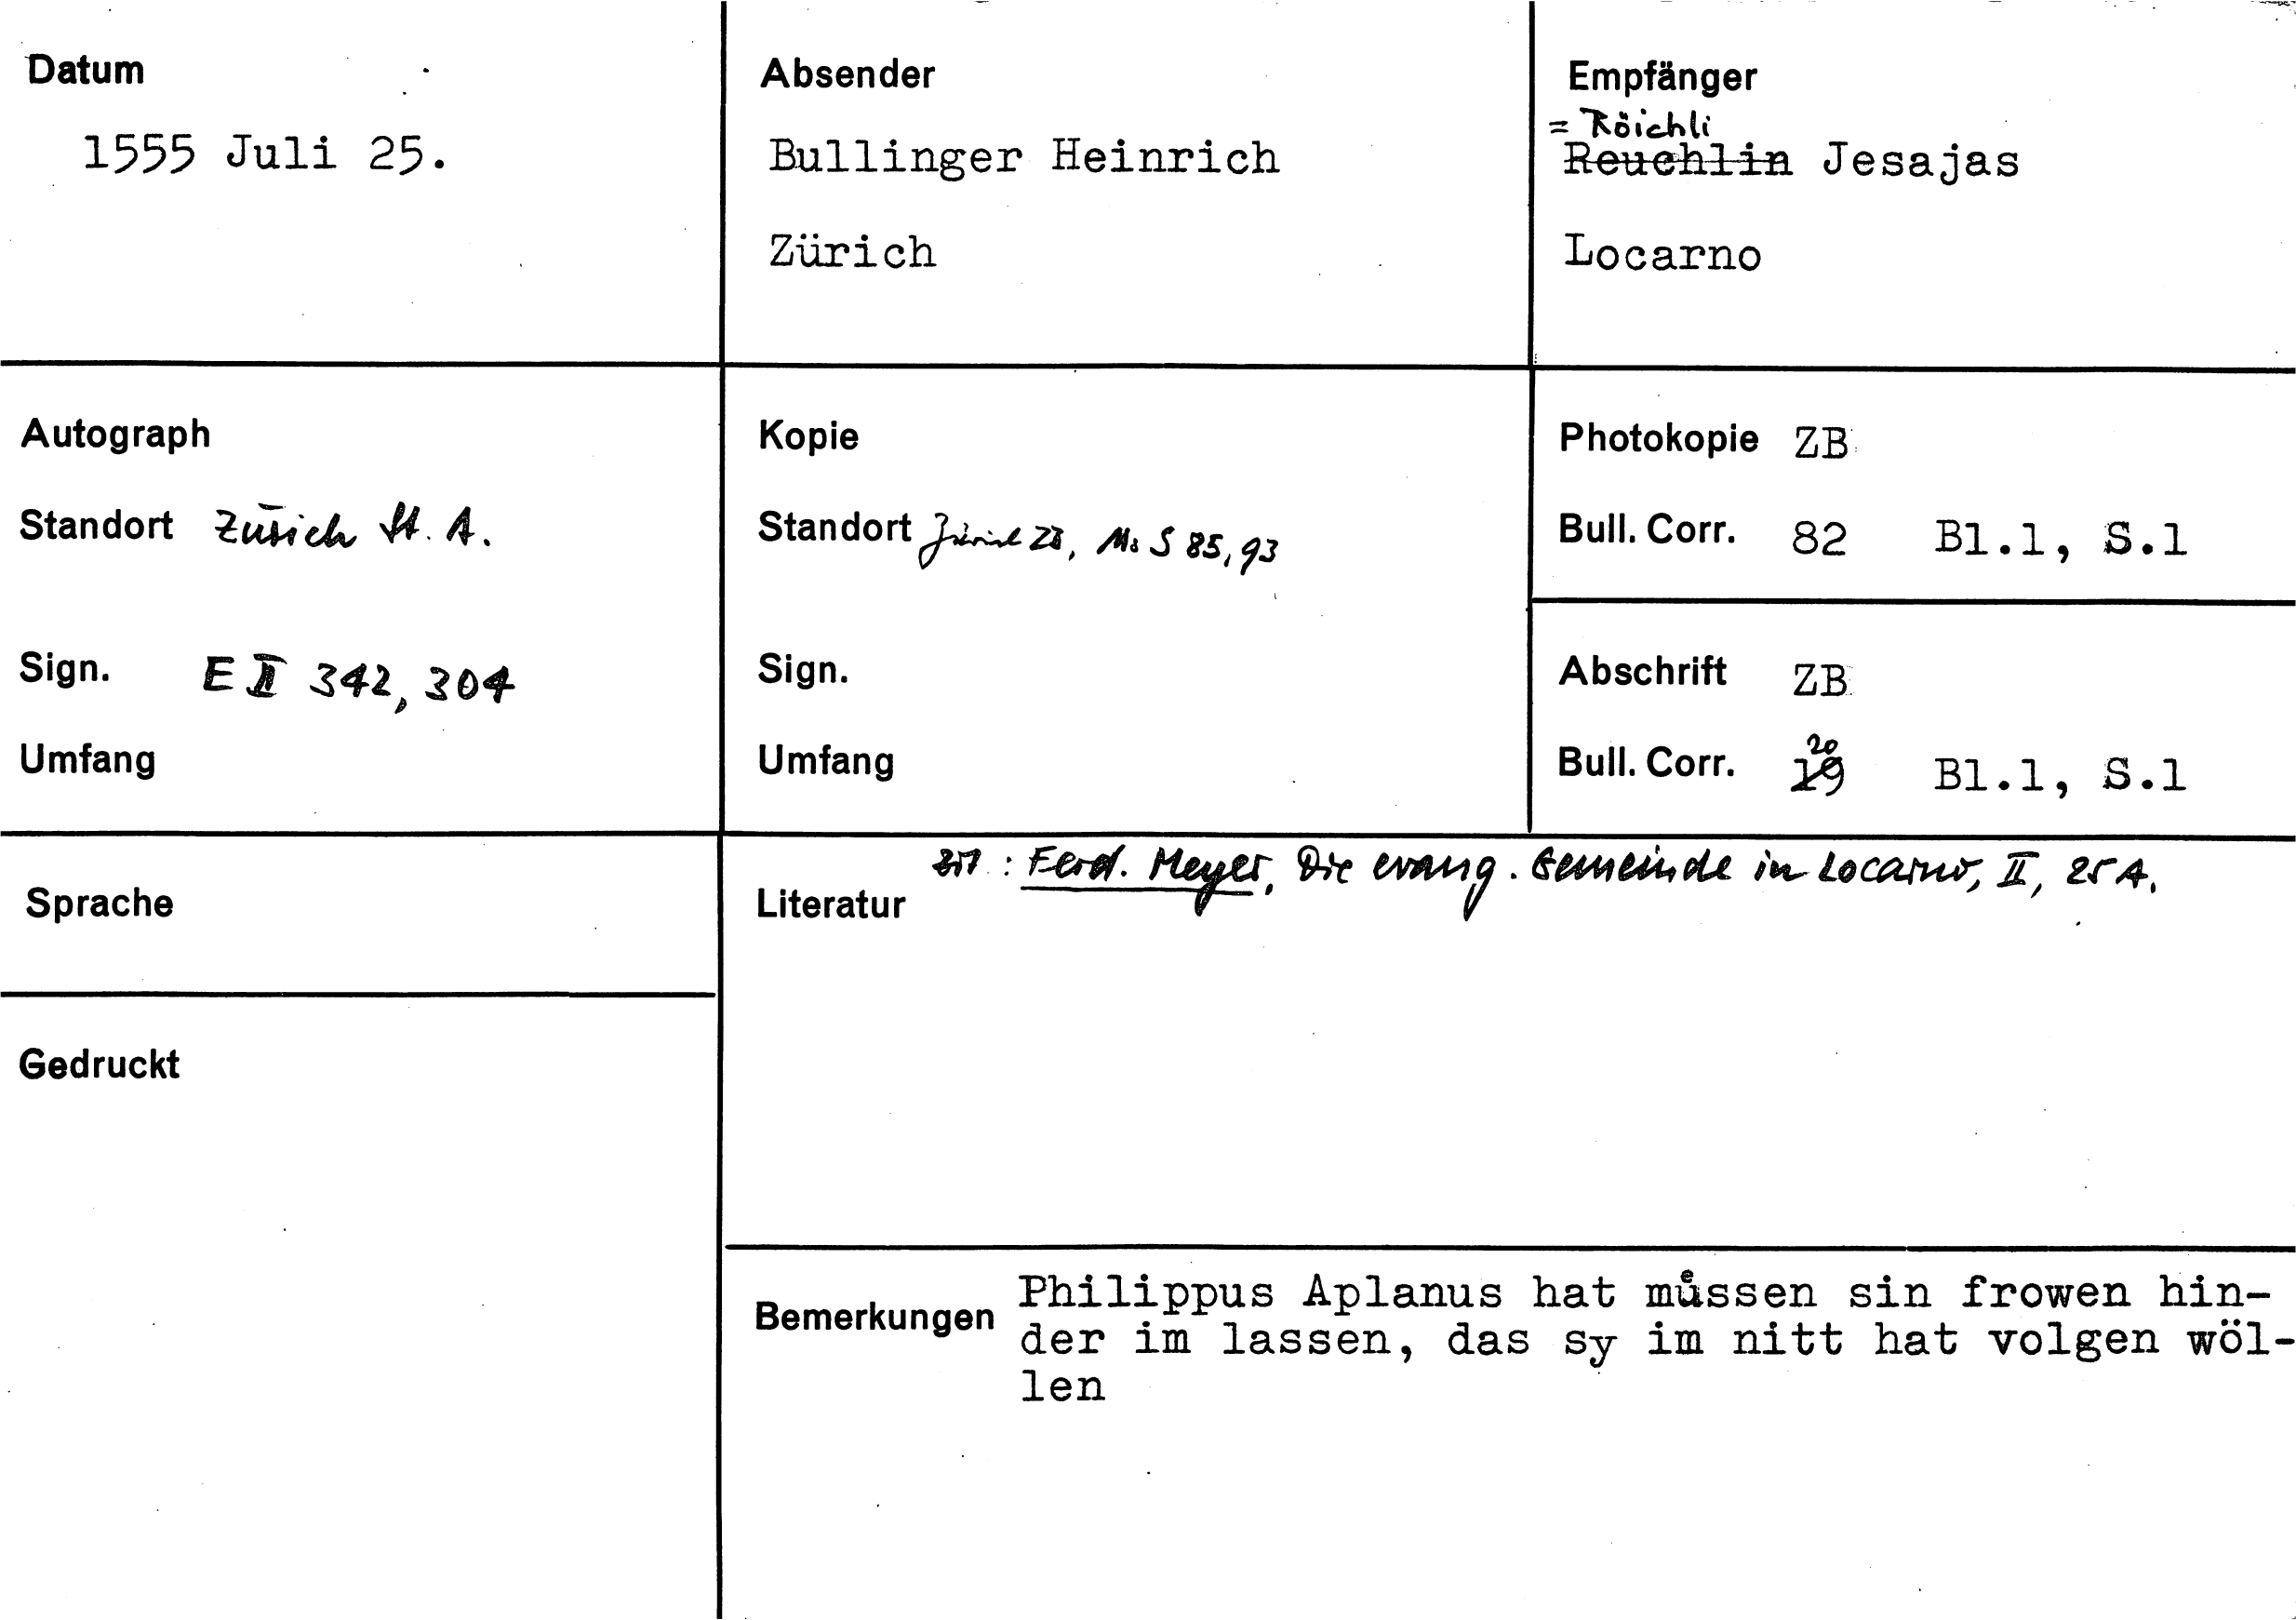 Datum
1555 Juli 25.
Absender
Bullinger Heinrich
Zürich
Empfänger
= Röichli
Reuchlin Jesajas
Locarno
Autograph
Standort Zürich St. A.
Sign. E II 342, 304
Umfang
Kopie
Standort Zürich ZB, Ms S 85, 93
Sign.
Umfang
Photokopie ZB
Bull. Corr. 82 Bl.1, S.1
Abschrift ZB
20
Bull. Corr. 19 Bl.1, S.1
Sprache
Gedruckt
zit : Ferd. Meyer, Die evang. Gemeinde in Locarno, II, 25 A.
Literatur
Bemerkungen
Philippus Aplanus hat muͤssen sin frowen hin-
der im lassen, das sy im nitt hat volgen wöl-
len